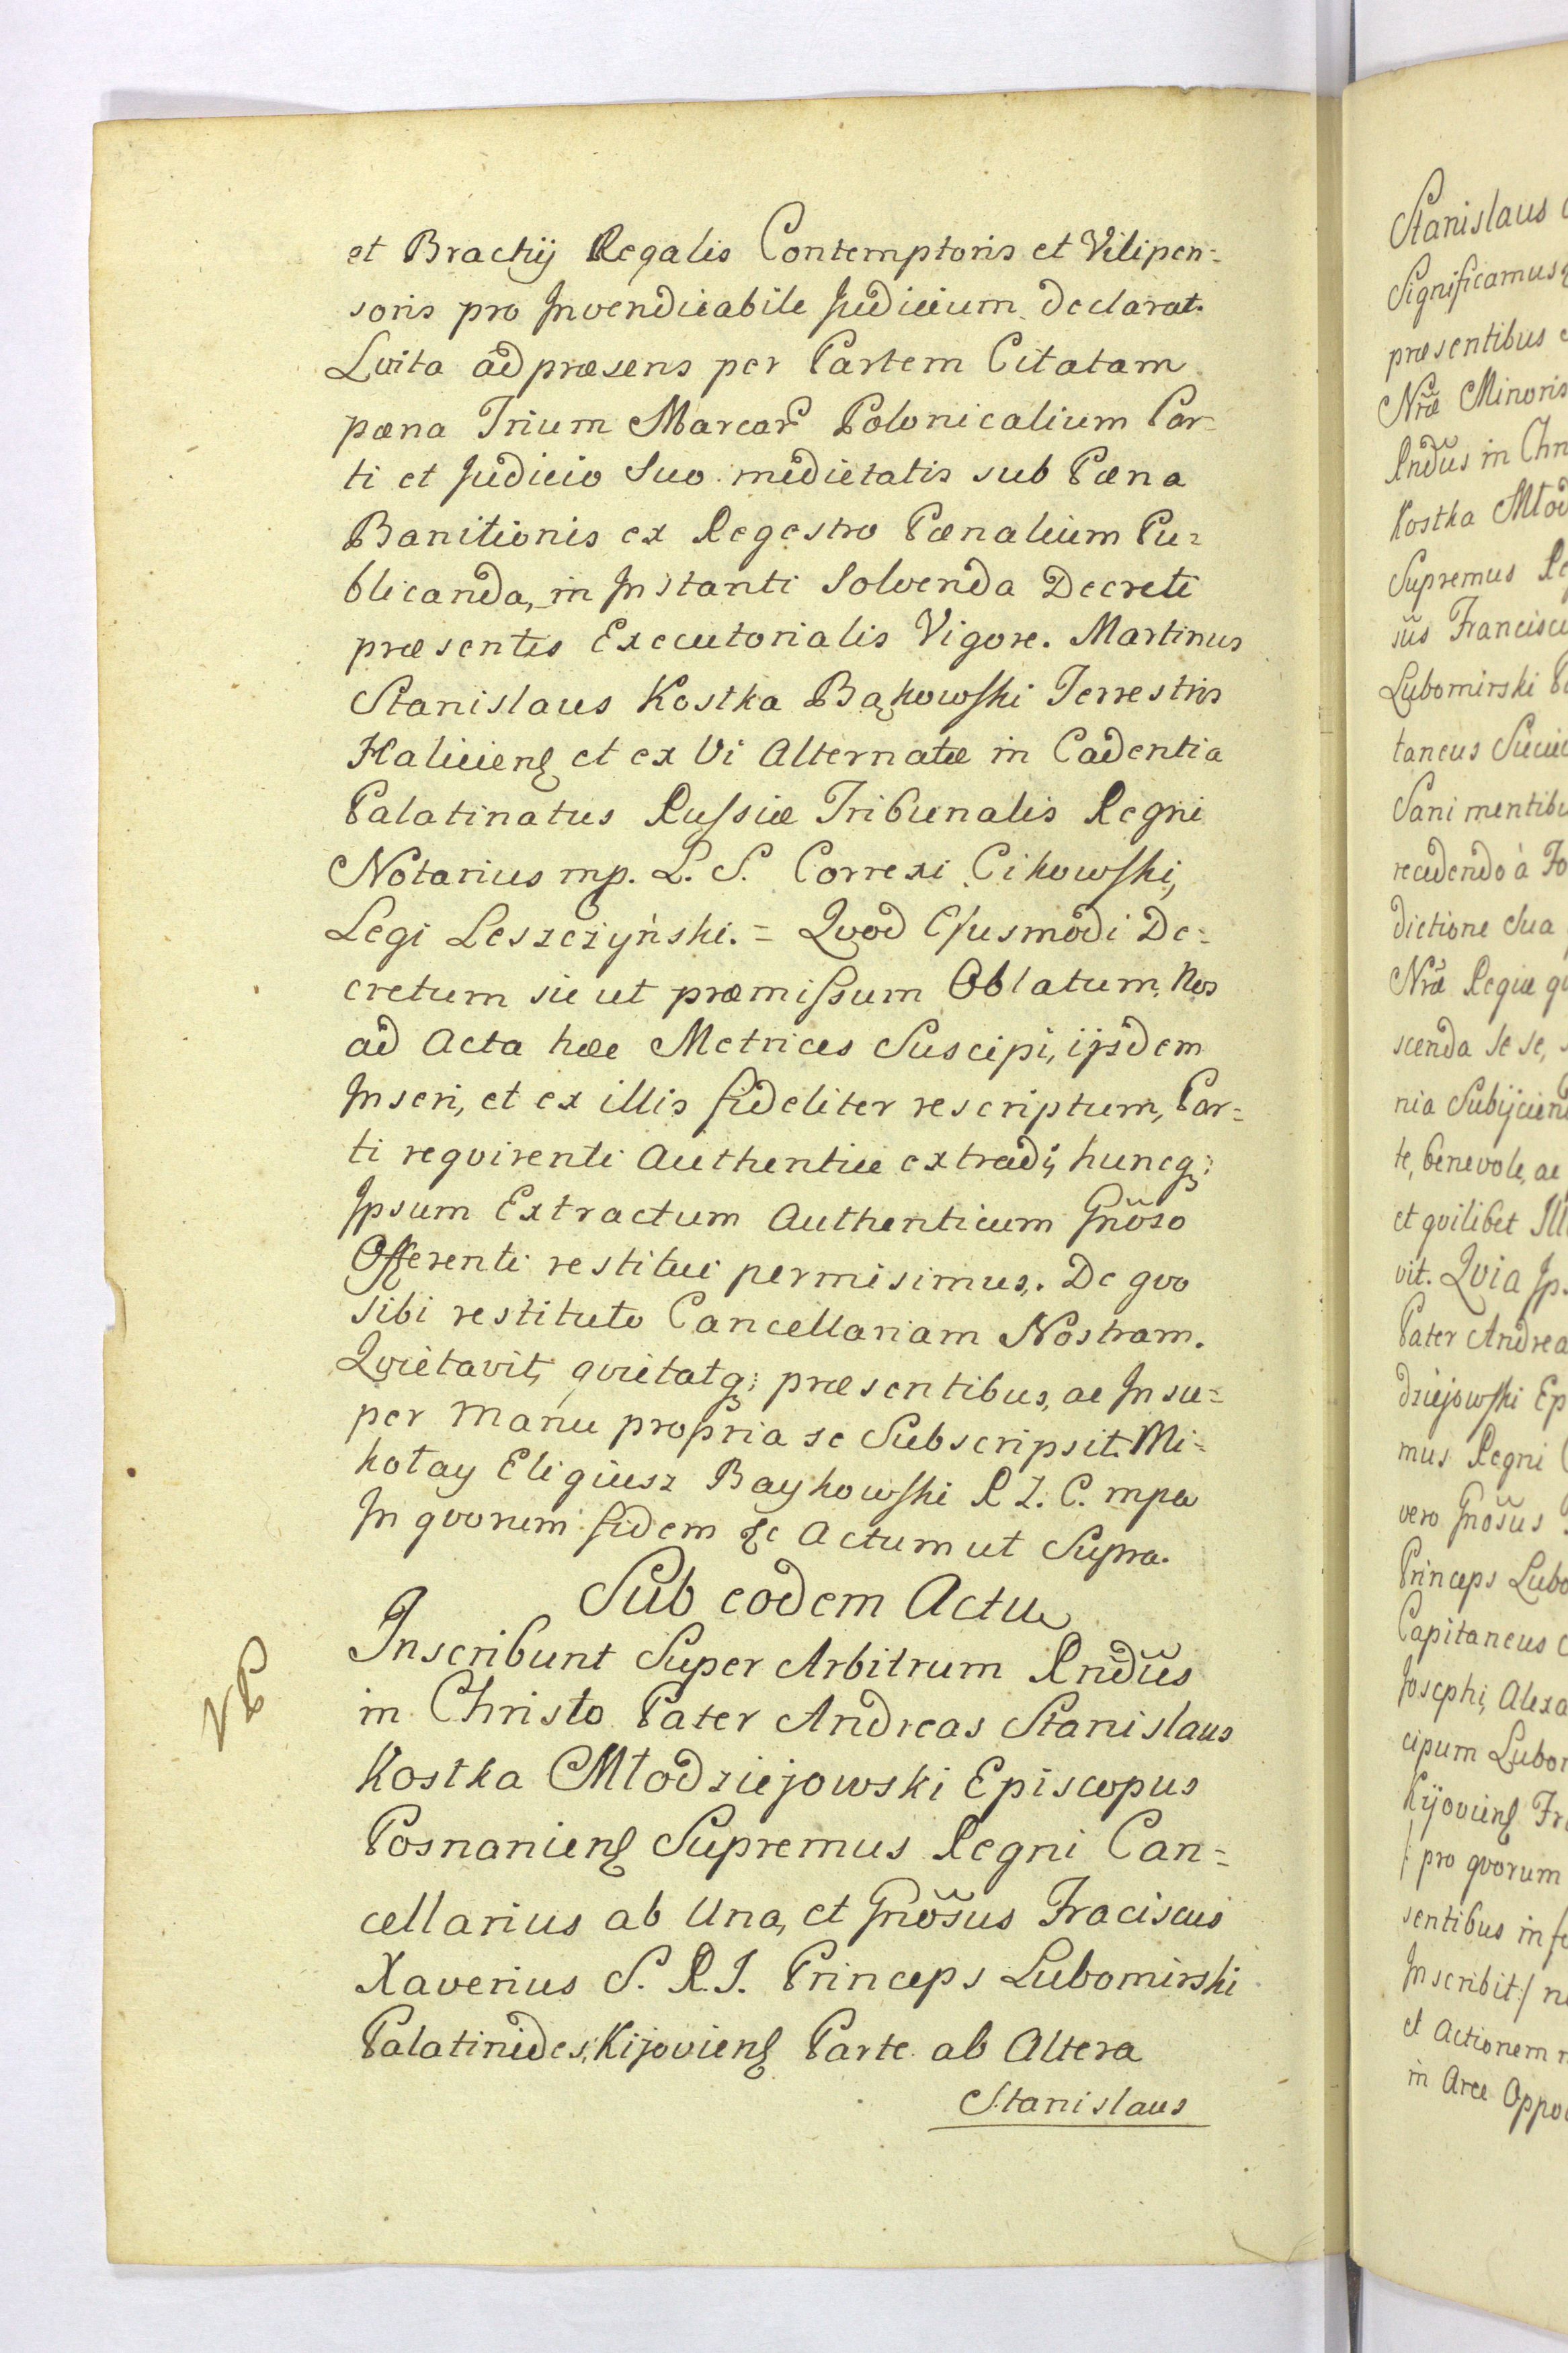 et Brachij Regalis Contemptoris et Vilipen=
soris pro Invendicabile Judicium declarat.
Luita ad præsens per Partem Citatam
pœna Trium Marcar Polonicalium Par=
ti et Judicio Suo medietatis sub Pœna
Banitionis ex Regestro Pœnalium Pu=
blicanda, in Instanti Solvenda Decreti
præsentis Executorialis Vigore. Martinus
Stanislaus Kostka Bąkowski Terrestris
Haliciens et ex Vi Alternatæ in Cadentia
Palatinatus Russiæ Tribunalis Regni
Notarius mp. L. S. Correxi Cikowski,
Legi Leszczyński. = Qvod Ejusmodi De=
cretum sic ut præmissum Oblatum, Nos
ad Acta hæc Metrices Suscipi, ijsdem
Inseri, et ex illis fideliter rescriptum, Par=
ti reqvirenti Authentice extradi, huncq;
Ipsum Extractum Authenticum Gnõso
Offerenti restitui permisimus. De qvo
sibi restituto Cancellariam Nostram.
Qvietavit, qvietatq; præsentibus, ac Insu=
per Manu propria se Subscripsit. Mi=
kołay Eligiusz Baykowski R J. C. mpa
In qvorum fidem &c Actum ut Supra.
Sub eodem Actu
NP
Inscribunt Super Arbitrum Rndũs
in Christo Pater Andreas Stanislaus
Kostka Młodziejowski Episcopus
Posnaniens Supremus Regni Can=
cellarius ab Una, et Gnõsus Fraciscus
Xaverius S. R. I. Princeps Lubomirski
Palatinides, Kijoviens Parte ab Altera
Stanislaus
Stanislaus
Significamus
præsentibus
Nræ Minoris
Rndũs in Chr
Kostka Młod
Supremus Re
sũs Francisc
Lubomirski P
taneus Succ
Sani mentibu
recedendo à Fo
dictione Sua
Nræ Regiæ
scenda se se,
nia Subijcien
te, benevole, ac
et qvilibet Ill
vit. Qvia Ip
Pater Andrea
dziejowski Ep
mus Regni
vero Gnõsus
Princeps Lubo
Capitaneus
Josephi, Alexa
cipum Lubor
Kijoviens Fr
pro qvorum
sentibus in fo
Inscribit
et Actionem
in Arce Oppo